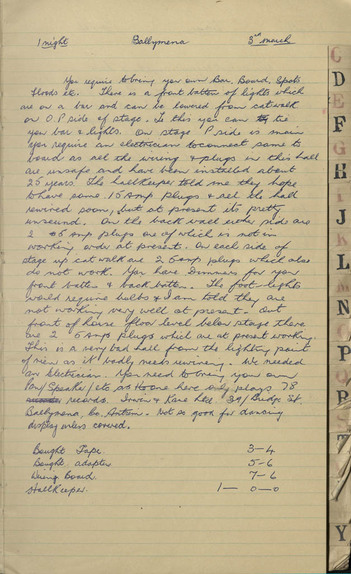 1 night Ballymena 3rd March
You require to bring your own Bar, Board, Spots
Floods etc. There is a front batten of lights which
are on a bar and can be lowered from catwalk
on O P side of stage. To this you can tie
your bar & lights. On stage P side is main
You require an electrician to connect same to
board as all the wiring & plugs in this hall
are unsafe and have been installed about
25 years. The hallkeeper told me they hope
to have some 15 Amp plugs & all the hall
rewired soon, but at present its pretty
unsound. On the back wall side are
2 5 amp plugs one of which is not in
working order at present. On each side of
stage up cat walk are 2 5 amp plugs which also
do not work. You have Dimmers for your
front batten & back batten. The foot-lights
would require bulbs & I am told they are
not working very well at present. Out
front of house floor level below stage there
are 2 5 Amp plugs which are at present working.
This is a very bad hall from the lighting point
of view as it badly needs rewiring. We needed
an Electrician. You need to bring your own
Pan/Speaker/etc as the one here only plays 78
records. Irwin & Kane Ltd. 39/ Bridge St.
Ballymena, Co. Antrim. Not so good for dancing
display unless covered.
Bought Tape 3-4
Bought adapter 5-6
Wiring Board 7-6
Hallkeeper 1-0-0
C
D
E
F
G
H
I
J
K
L
M
N
O
P
Q
R
S
T
Y